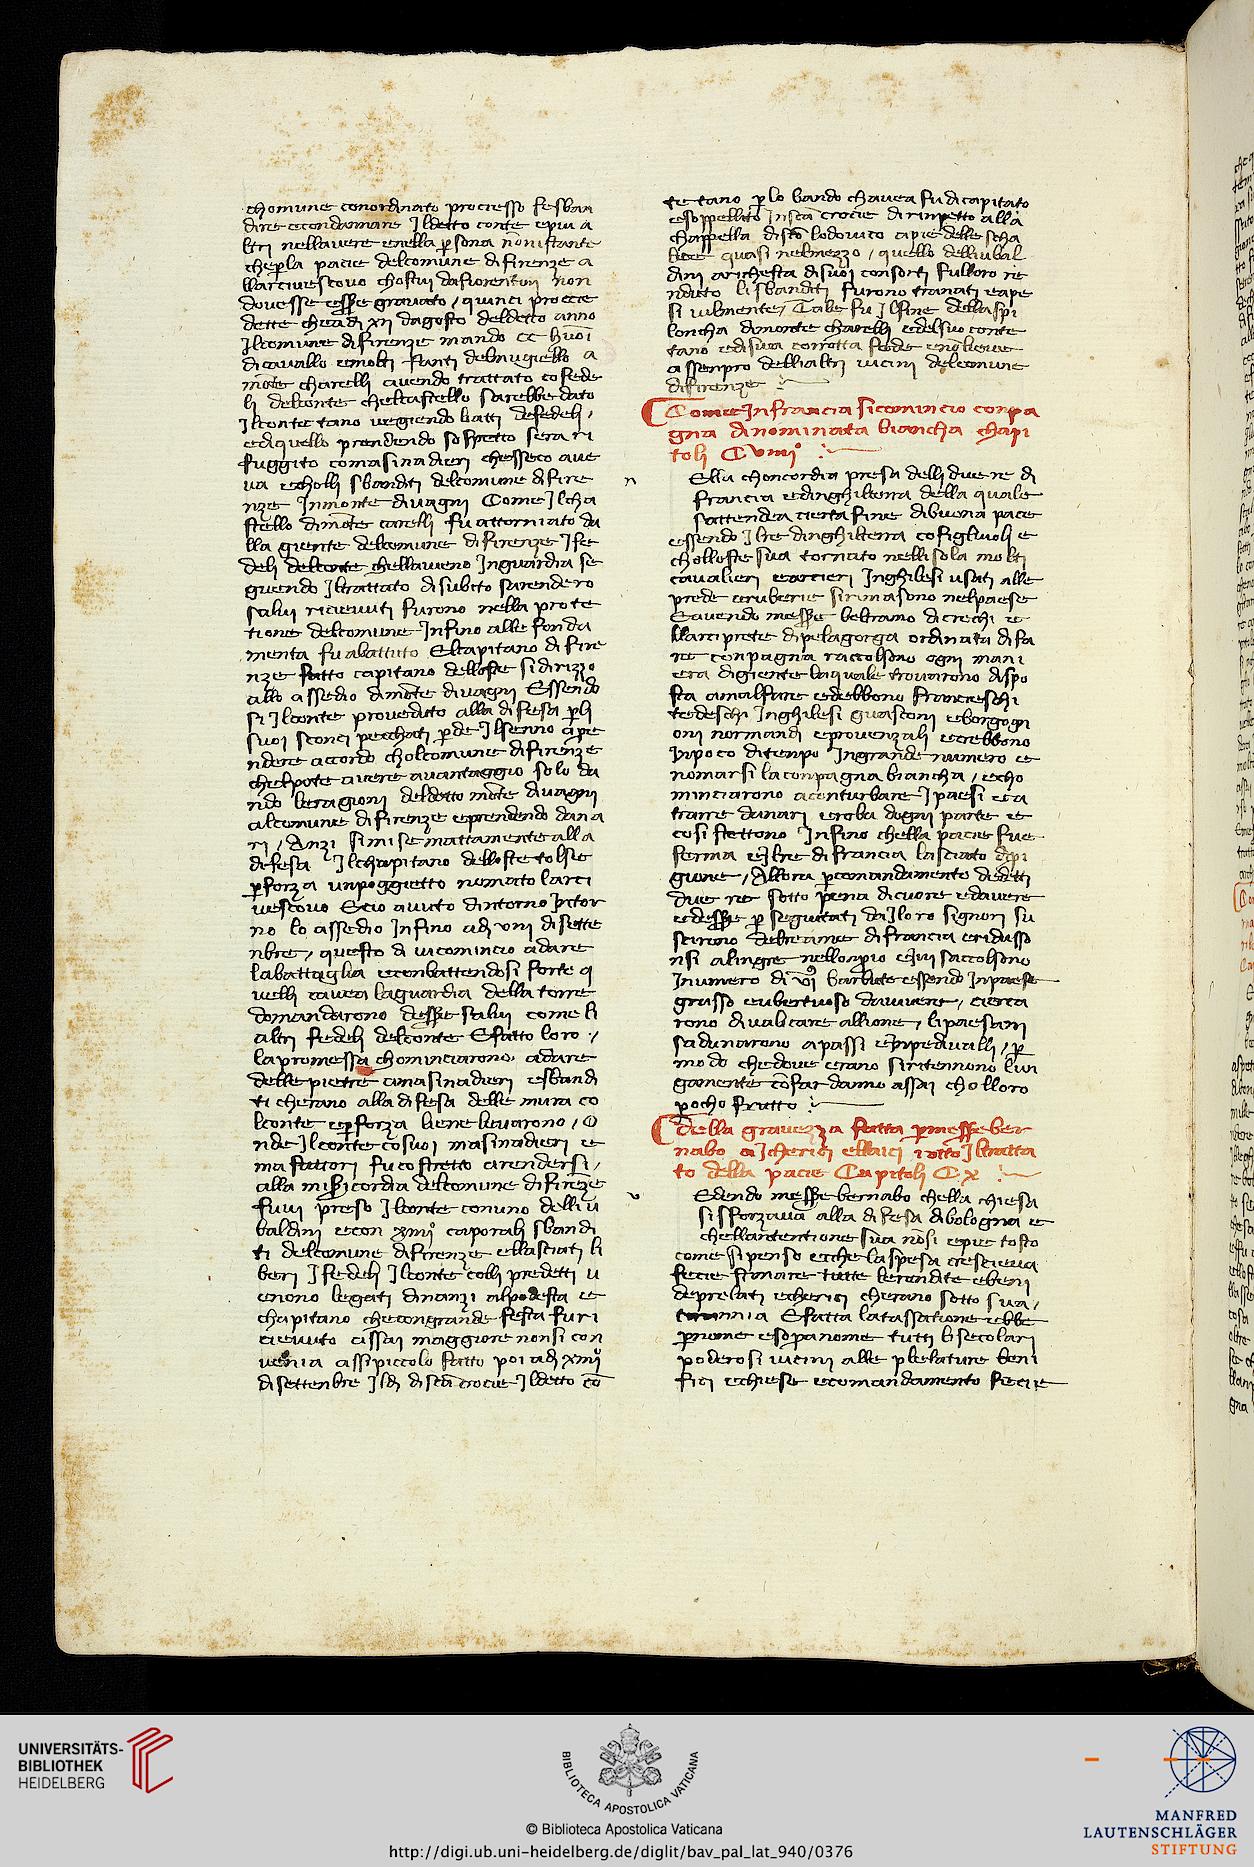 chomune conordinato prociesso fe sban
dire econdannare Jldetto conte epiu a
ltri nellavere enella psona nonistante
chepla pacie delcomune difirenze a
llarciuescouo chostui dafiorentini non
douesse essere grauato / quinci procie
dette chea di xij dagosto deldetto anno
Jlcomune difirenze mando cc huoi
dicauallo emolti fanti delmugiello a
mote charelli auendo trattato cofede
li delconte chelcastello sarebbe dato
Jlconte tano uegiendo liatti defedeli /
ediquello prendendo sospetto sera ri
fuggito comasinadieri chesseco aue
ua echolli sbanditi delcomune difire
nze Inmonte diuagni Come Jlcha
stello dimote carelli fu attorniato da
lla giente delcomune difirenze Jfe
deli delconte chellaueno Inguardia se
guendo Jltrattato disubito sarendero
salui riceuuti furono nella prote
tione delcomune Infino alle fonda
menta fu abattuto Elcapitano difire
nze fatto capitano delloste sidirizzo
allo assedio dimote diuagni Essendo
si Jlconte proueduto alla difesa pli
suoi sconci pecchati pde Jlsenno ape
ndere accordo cholcomune difirenze
chelpote auere auantaggio solo da
ndo leragioni deldetto mote diuagni
alcomune difirenze eprendendo dana
ri / Anzi simise mattamente alla
difesa Jlchapitano delloste tolse
pforza unpoggietto nomato larci
uescouo Ecio auuto dintorno Intor
no lo assedio Infino adi viij disette
nbre / questo di uicomincio adare
labattaglia econbattendosi forte q
uelli cauea laguardia della torre
domandarono dessere salui come li
altri fedeli delconte Efatto loro /
lapromessa chominciarono adare
dellepietre amasinadieri esbandi
ti cherano alla difesa delle mura co
lconte epforza liene leuarono / O
nde Jlconte cosuoi masinadieri e
ma fattori fu costretto arendersi /
alla misicordia delcomune difirenze
fuui preso Jlconte conuno delli u
baldini econ xiiij caporali sbandi
ti delcomune difirenze ellasciati li
beri Jfedeli Jlconte colli predetti u
enono legati dinanzi alpodesta e
chapitano checongrande festa furi
cieuuto assai maggiore nonsi con
uenia assipiccolo fatto poi adi xiiij
disettenbre Jldi disca crocie Jldetto co
te tano plo bando chauea fu dicapitato
esoppellito Insca crocie dirinpetto alla
chappella disco lodouico apie delle scha
lee quasi nelmezzo / quello delliubal
dini arichesta disuoi consorti fulloro re
nduto lisbanditi furono tranati eape
si uilmente / Tale fu Jlfine dellaspi
loncha dimonte charelli edelsuo conte
tano edisua corrotta fede enolieue
assenpro dellialtri uicini delcomune
difirenze
Come Infrancia sicomincio conpa
gna dinominata biancha chapi
toli Cviiij
n Ella choncordia presa dellidue re di
francia edinghilterra della quale
sattendea certa fine dibuona pace
essendo Jlre dinghilterra cofigliuoli e
cholloste sua tornato nellisola molti
caualieri earcieri Inghilesi usati alle
prede eruberie sirimasono nelpaese
Eauendo messere beltramo dicrechi e
llarciprete dipelagorga ordinata difa
re conpagna raccolsono ogni mani
era digiente laquale trouarono dispo
sta amalfare edebbono francieschi
tedeschi Inghilesi guasconi eborgogn
oni normandi eprouenzali ecrebbono
Inpoco ditenpo Ingrande numero e
nomarsi laconpagna biancha / echo
minciarono aconturbare Jpaesi ea
trarre danari eroba dogni parte e
cosi stettono Infino chella pacie fue
ferma eJlre difrancia lasciato dipi
gione / Allora pcomandamento dedetti
due re sotto pena dicuore edauere
edessere pseguitati daJloro signori su
scirono delreame difrancia eridusso
nsi alingre nellonpio eiui saccolsono
Inumero di vi barbute essendo Inpaese
grasso eubertuoso dauiuere / cierca
rono diualicare allione / lipaesani
sadunarono apassi eInpediualli / p
modo chedoue erano siritennono lun
gamente cofar danno assai cholloro
pocho frutto
della grauezza fatta pmesse ber
nabo aJcherici ellaici sotto Jltratta
to della pacie Capitoli Cx
v Edendo messe bernabo chella chiesa
sisforzaua alla difesa dibologna e
chellantentione sua nosi epie tosto
come sipenso echelaspesa crescieua
fecie stimare tutte lerendite ebeni
deprelati echerici cherano sotto sua /
tirannia Efatta latassatione ebbe
pnome esopanome tutti lisecolari
poderosi uicini alle prelature beni
fici echiese ecomandamento fecie
UNIVERSITÄTS-
BIBLIOTHEK
HEIDELBERG
BIBLIOTECA APOSTOLICA VATICANA
© Biblioteca Apostolica Vaticana
http://digi.ub.uni-heidelberg.de/diglit/bav_pal_lat_940/0376
MANFRED
LAUTENSCHLÄGER
STIFTUNG